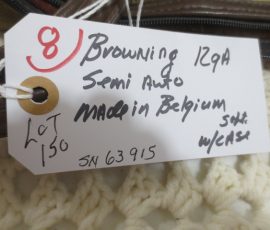 8 Browning 12gA
Semi Auto
made in Belgium
Soft
w/case
LOT
150
SN 63915